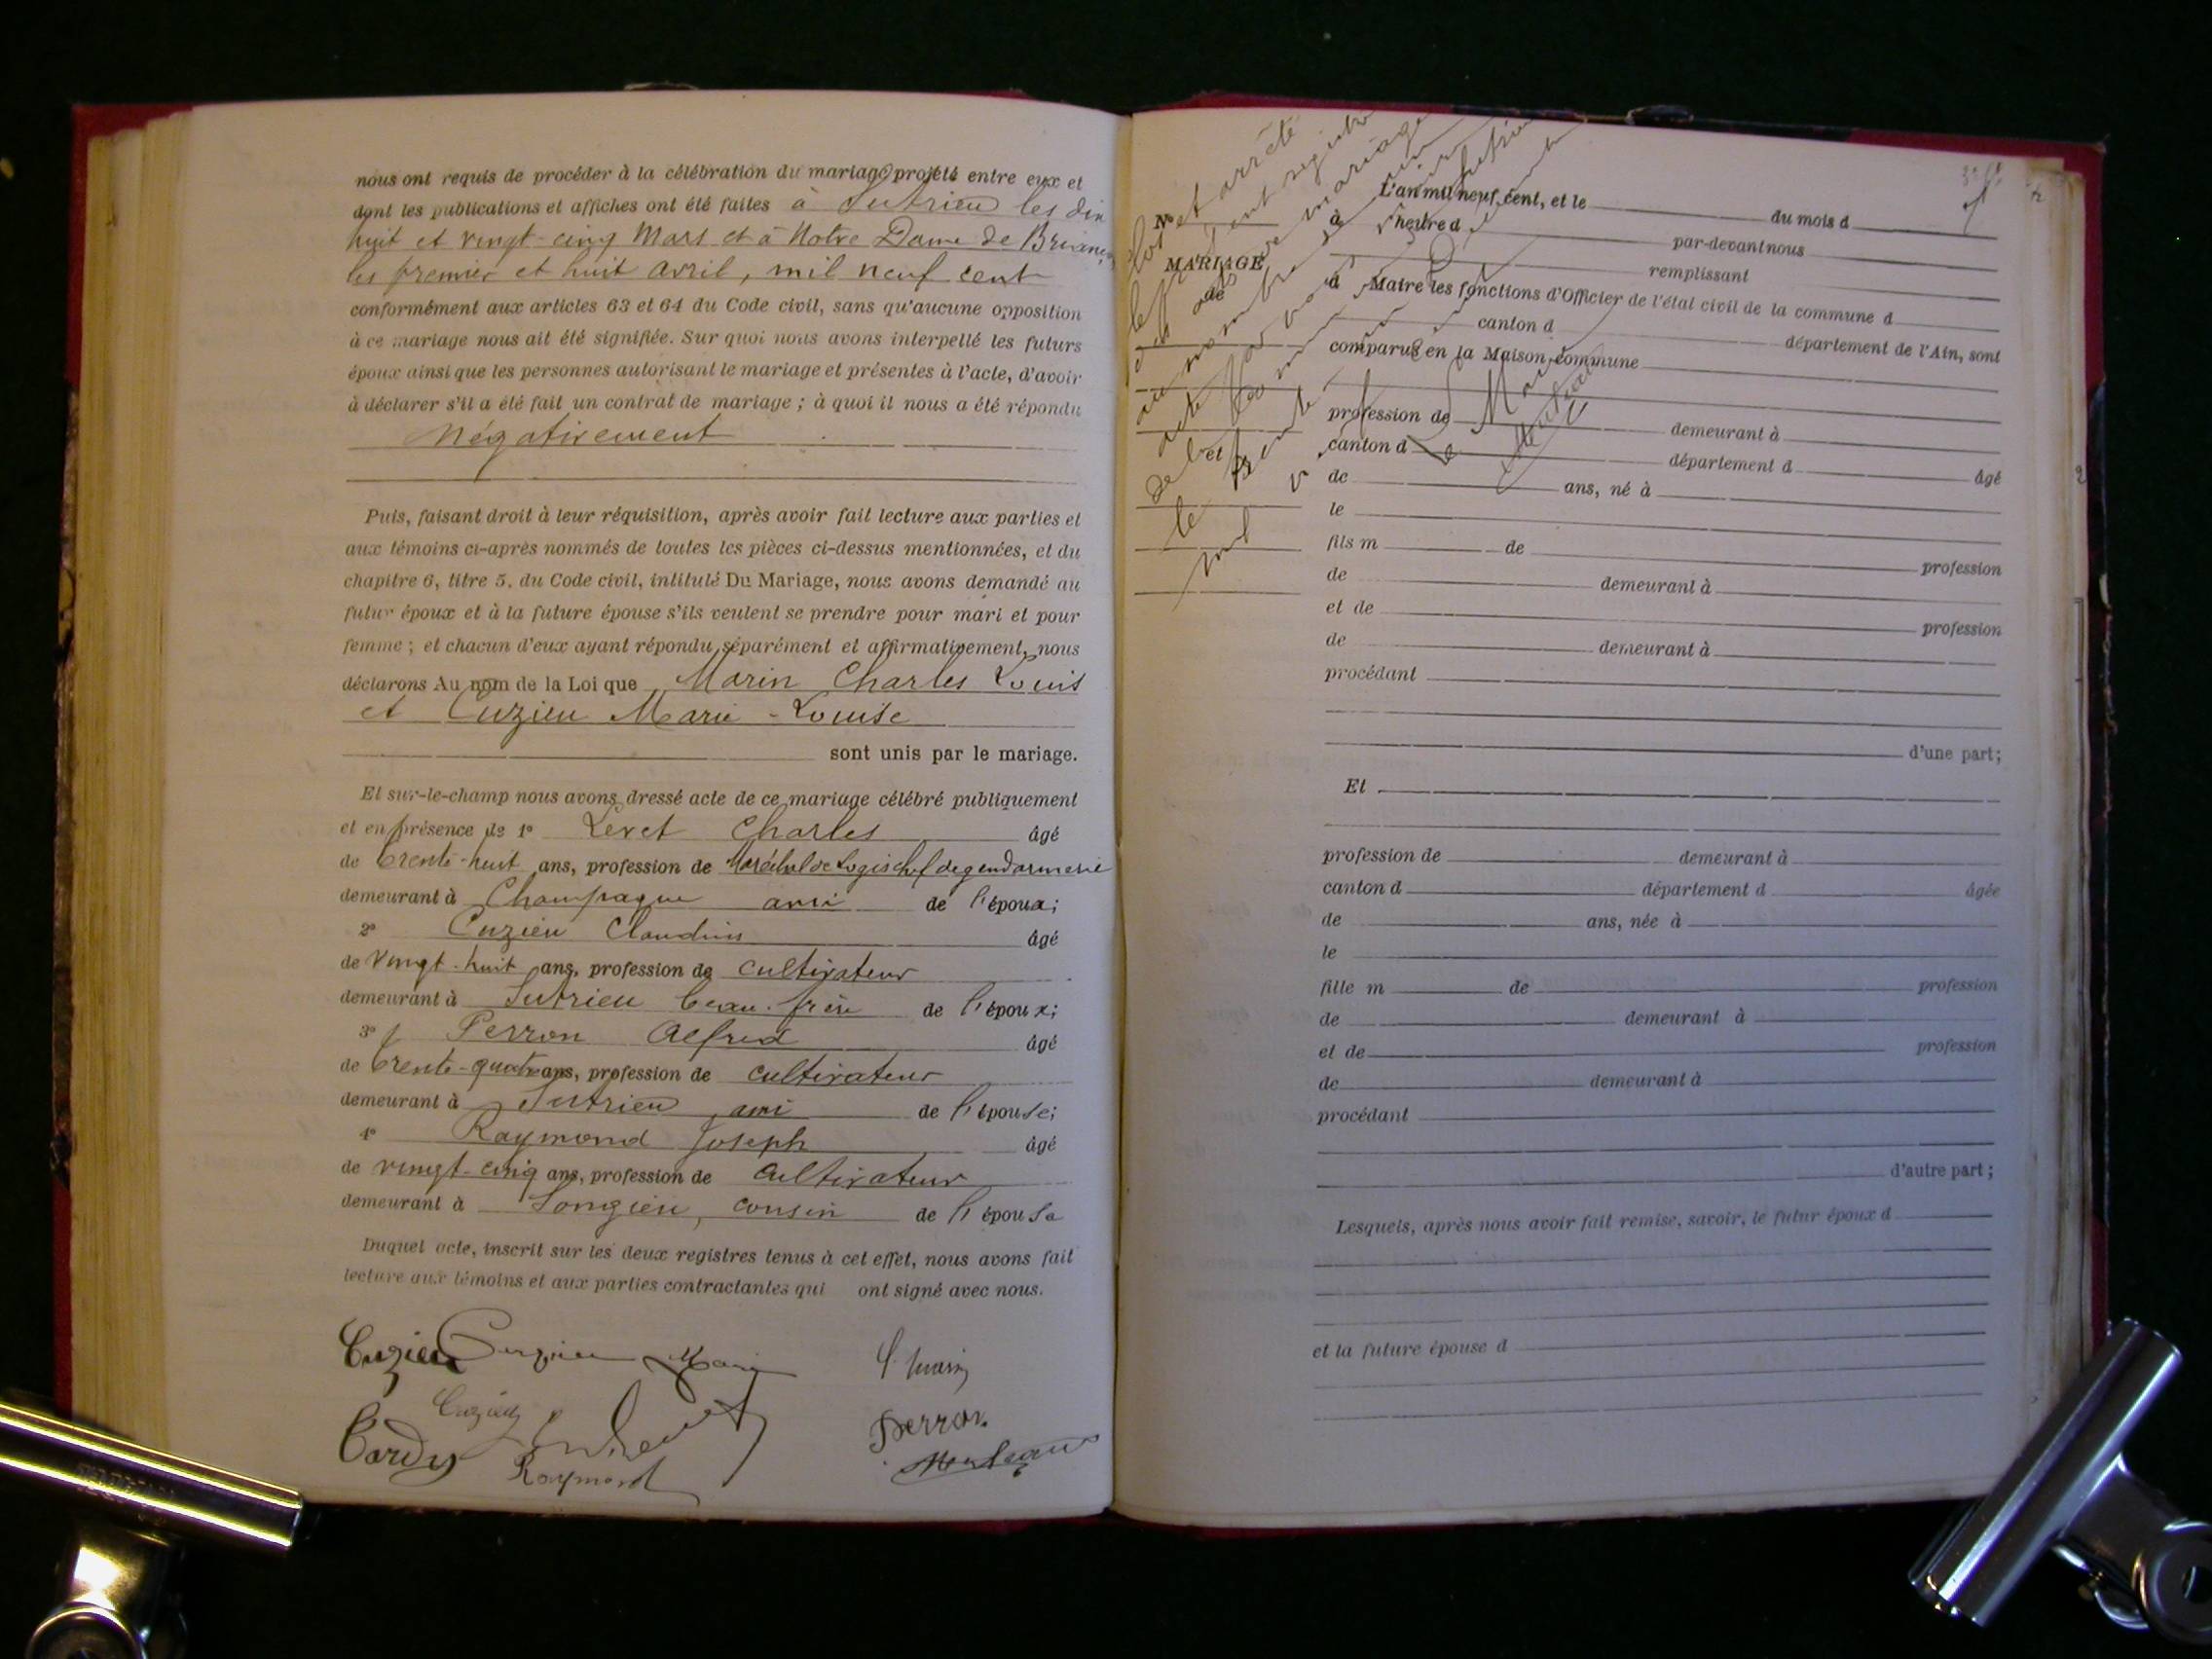 nous ont requis de procéder à la célébration du mariage projeté entre eux et
dont les publications et affiches ont été faites à Sutrieu les dix
huit et vingt-cinq Mars et à Notre Dame de
les premier et huit avril, mil neuf cent
conformément aux articles 63 et 64 du Code civil, sans qu'aucune opposition
à ce mariage nous ait été signifiée. Sur quoi nous avons interpellé les futurs
époux ainsi que les personnes autorisant le mariage et présentes à l'acte, d'avoir
à déclarer s'il a été fait un contrat de mariage ; à quoi il nous a été répondu
négativement
Puis, faisant droit à leur réquisition, après avoir fait lecture aux parties et
aux témoins ci-après nommés de toutes les pièces ci-dessus mentionnées, et du
chapitre 6, titre 5, du Code civil, intitulé Du Mariage, nous avons demandé au
futur époux et à la future épouse s'ils veulent se prendre pour mari et pour
femme ; et chacun d'eux ayant répondu séparément et affirmativement, nous
déclarons Au nom de la Loi que Marin Charles Louis
et Cuzieu Marie-Louise
sont unis par le mariage.
Et sur-le-champ nous avons dressé acte de ce mariage célébré publiquement
et en présence de 1° Levet Charles âgé
de trente-huit ans, profession de Maréchal de Logis chef de gendarmerie
demeurant à Champagne ami de l'époux;
2° Cuzieu Claudius âgé
de vingt-huit ans, profession de cultivateur
demeurant à Sutrieu beau-frère de l'époux;
3° Perron Alfred âgé
de trente-quatre ans, profession de cultivateur
demeurant à Sutrieu ami de l'épouse;
4° Raymond Joseph âgé
de vingt-cinq ans, profession de cultivateur
demeurant à Songieu, cousin de l'épouse
Duquel acte, inscrit sur les deux registres tenus à cet effet, nous avons fait
lecture aux témoins et aux parties contractantes qui ont signé avec nous.
Cuzieu Cuzieu Marie C. Marin
Cuzieu Levet Perron
Cardy Raymond
Clos et arrêté
le présent registre
des actes de mariage
au nombre de
acte par nous Maire
de la commune de Sutrieu
le trente un Décembre
mil neuf cent
Le Maire
N°
MARIAGE
de
et
L'an mil neuf cent, et le du mois d
à heure d par-devant nous
remplissant
d Maire les fonctions d'Officier de l'état civil de la commune d
canton d département de l'Ain, sont
comparus en la Maison commune
profession de demeurant à
canton d département d âgé
de ans, né à
le
fils m de profession
de demeurant à
et de profession
de demeurant à
procédant
d'une part;
Et
profession de demeurant à
canton d département d âgée
de ans, née à
le
fille m de profession
de demeurant à
et de profession
de demeurant à
procédant
d'autre part ;
Lesquels, après nous avoir fait remise, savoir, le futur époux d
et la future épouse d